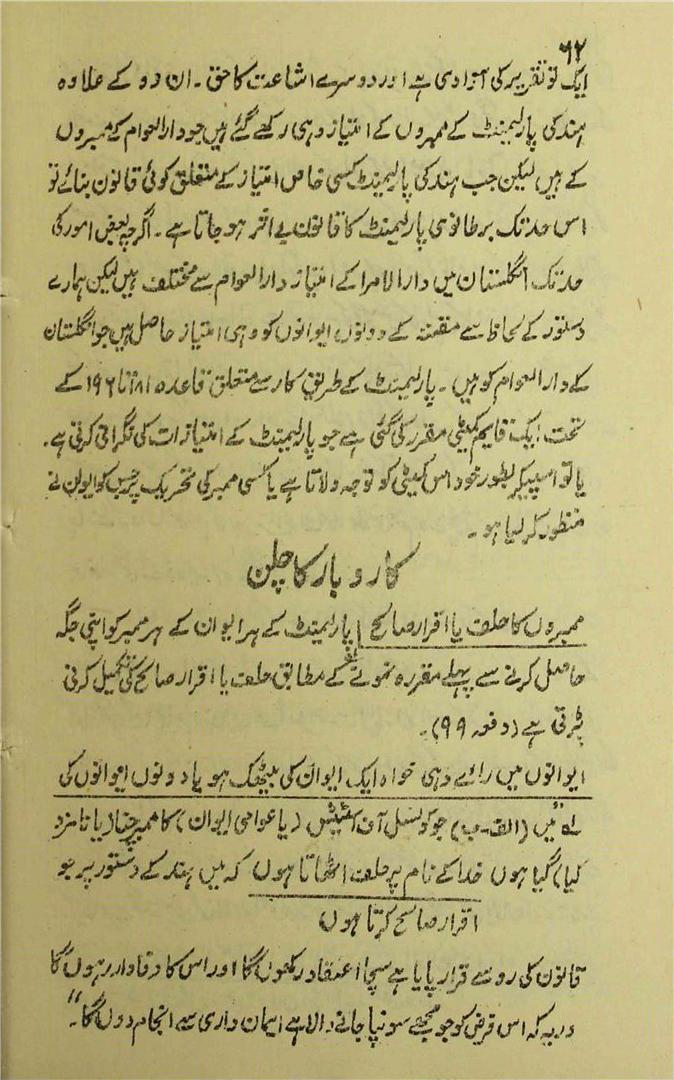 ٦٢
ایک تو تقریر کی آزادی ہے اور دوسرے اشاعت کا حق ۔ ان دو کے علاوہ
ہند کی پارلیمنٹ کے ممبروں کے امتیاز وہی رکھے گئے ہیں جو دارالعوام کے ممبروں
کے ہیں لیکن جب ہند کی پارلیمنٹ کسی خاص امتیاز کے متعلق کوئی قانون بنائے تو
اس حد تک برطانوی پارلیمنٹ کا قانون بے اثر ہو جاتا ہے ۔ اگرچہ بعض امور کی
حد تک انگلستان میں دارالامرا کے امتیاز دارالعوام سے مختلف ہیں لیکن ہمارے
دستور کے لحاظ سے مقننہ کے دونوں ایوانوں کو وہی امتیاز حاصل ہیں جو انگلستان
کے دارالعوام کو ہیں ۔ پارلیمنٹ کے طریق کار سے متعلق قاعدہ ١٨١ تا ١٩٦ کے
تحت ایک قایم کمیٹی مقرر کی گئی ہے جو پارلیمنٹ کے امتیازات کی نگرانی کرتی ہے ۔
یا تو اسپیکر بطور خود اس کمیٹی کو توجہ دلاتا ہے یا کسی ممبر کی تحریک پر جس کو ایوان نے
منظور کر لیا ہو ۔
کاروبار کا چلن
ممبروں کا حلف یا اقرار صالح | پارلیمنٹ کے ہر ایوان کے ہر ممبر کو اپنی جگہ
حاصل کرنے سے پہلے مقررہ نمونے کے مطابق حلف یا اقرار صالح کی تکمیل کرنی
پڑتی ہے (دفعہ ٩٩) ۔
ایوانوں میں رائے دہی خواہ ایک ایوان کی بیٹھک ہو یا دونوں ایوانوں کی
لہ "میں (الف ۔ ب) جو کونسل آف اسٹیٹس (یا عوامی ایوان) کا ممبر چنا (یا نامزد
کیا) گیا ہوں خدا کے نام پر حلف اٹھاتا ہوں کہ میں ہند کے دستور پر جو
اقرار صالح کرتا ہوں
قانون کی رو سے قرار پایا ہے سچا اعتقاد رکھوں گا اور اس کا وفادار رہوں گا
در یہ کہ اس فرض کو جو مجھے سونپا جانے والا ہے ایمان داری سے انجام دوں گا" ۔